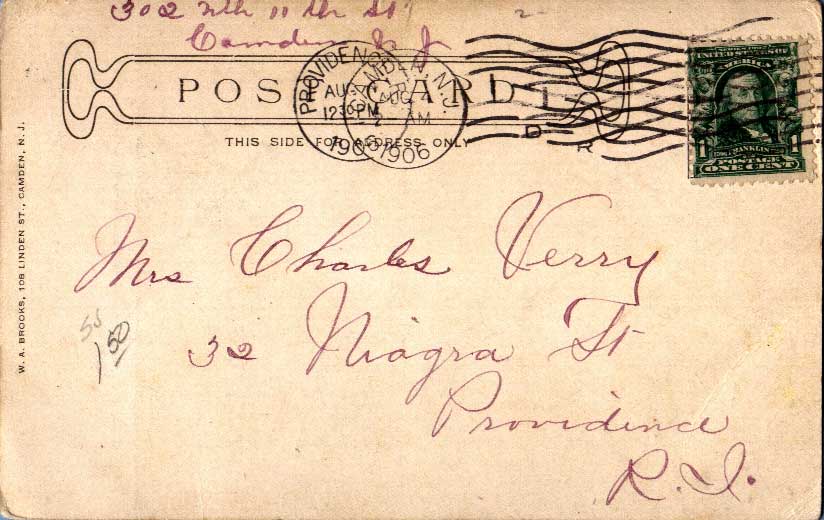 302 Nth 11th St
Camden N J
POST CARD
THIS SIDE FOR ADDRESS ONLY
PROVIDENCE
AUG
12 30 PM
1906
CAMDEN, N.J.
AUG
2 AM
1906
D
R
SERIES 1902
UNITED STATES OF AMERICA
FRANKLIN
1 POSTAGE 1
ONE CENT
W. A. BROOKS, 108 LINDEN ST., CAMDEN, N. J.
Mrs Charles Verry
32 Niagra St
Providence
R.I.
50
1 50